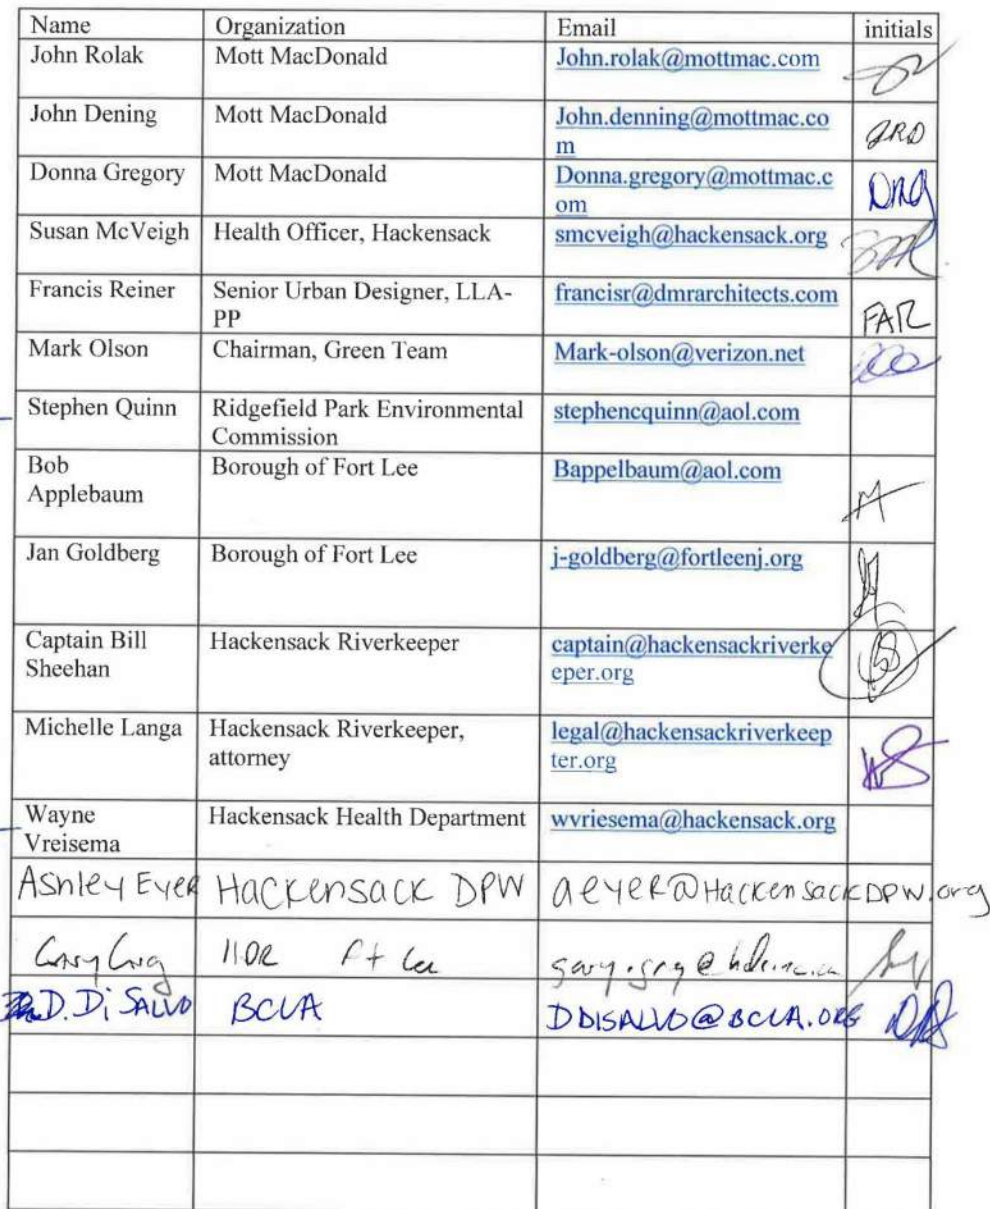 Name Organization Email initials
John Rolak Mott MacDonald John.rolak@mottmac.com
John Dening Mott MacDonald John.denning@mottmac.co
m
JRD
Donna Gregory Mott MacDonald Donna.gregory@mottmac.c
om
DRG
Susan McVeigh Health Officer, Hackensack smcveigh@hackensack.org
Francis Reiner Senior Urban Designer, LLA- francisr@dmrarchitects.com
PP
FAR
Mark Olson Chairman, Green Team Mark-olson@verizon.net
Stephen Quinn Ridgefield Park Environmental stephencquinn@aol.com
Commission
Bob Borough of Fort Lee Bappelbaum@aol.com
Applebaum
Jan Goldberg Borough of Fort Lee j-goldberg@fortleenj.org
Captain Bill Hackensack Riverkeeper captain@hackensackriverke
Sheehan eper.org
Michelle Langa Hackensack Riverkeeper, legal@hackensackriverkeep
attorney ter.org
Wayne Hackensack Health Department wvriesema@hackensack.org
Vreisema
Ashley Eyer Hackensack DPW aeyer@HackensackDPW.org
HDR Ft Lee
D. Di SALVO BCUA DDISALVO@BCUA.ORG